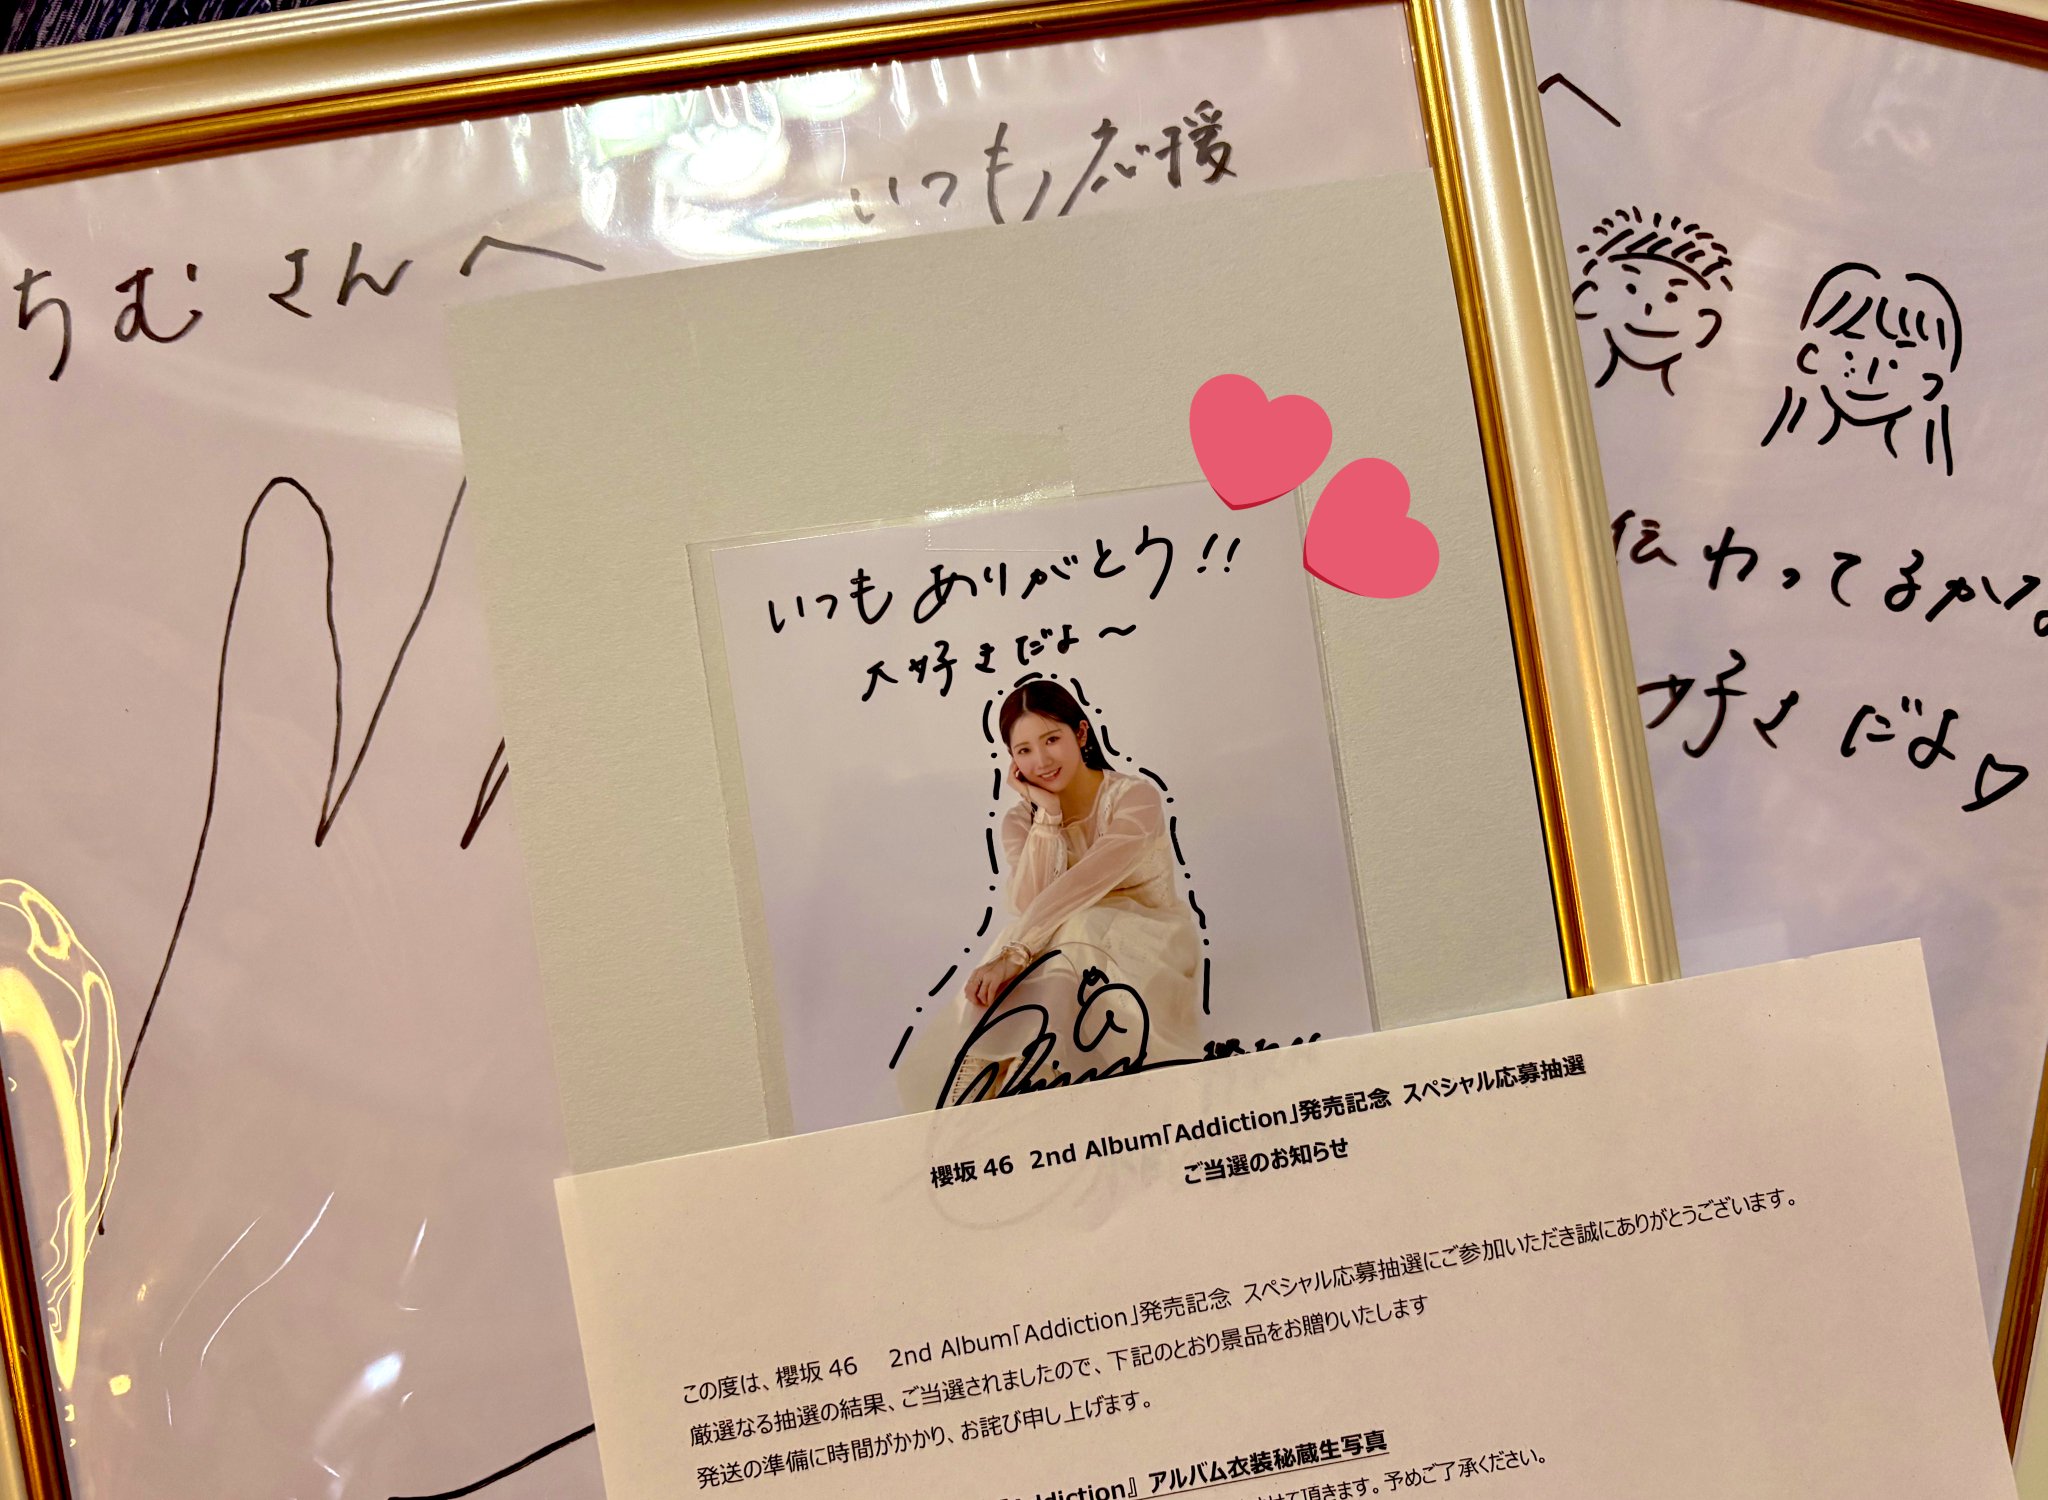 ちむさんへ
いつも応援
へ
伝わってるかな
好きだよ♡
いつもありがとう!!
大好きだよ〜
櫻坂46 2nd Album「Addiction」発売記念 スペシャル応募抽選
ご当選のお知らせ
この度は、櫻坂46 2nd Album「Addiction」発売記念 スペシャル応募抽選にご参加いただき誠にありがとうございます。
厳選なる抽選の結果、ご当選されましたので、下記のとおり景品をお贈りいたします
発送の準備に時間がかかり、お詫び申し上げます。
Addiction』アルバム衣装秘蔵生写真
て頂きます。予めご了承ください。